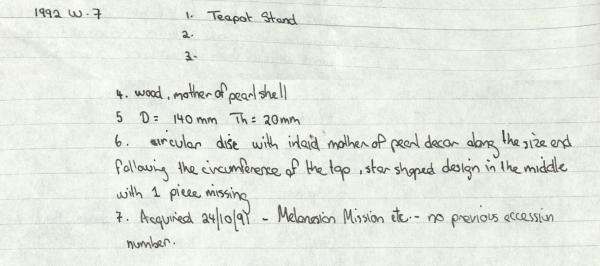 1992 W.7 1. Teapot Stand
2.
3-
4. wood, mother of pearl shell
5 D = 140 mm Th = 20mm
6. circular disc with inlaid mother of pearl decor along the size and
following the circumference of the top, star shaped design in the middle
with 1 piece missing
7. Acquired 24/10/91 - Melanesian Mission etc - no previous accession
number.